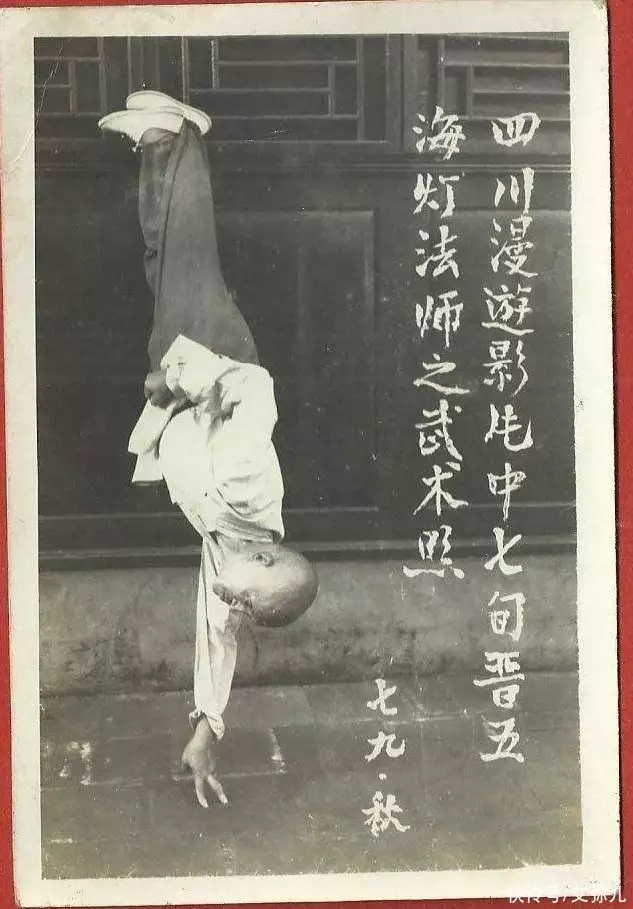 四川漫遊影片中七旬晋五
海灯法师之武术照
七九·秋
快传号/艾孫儿